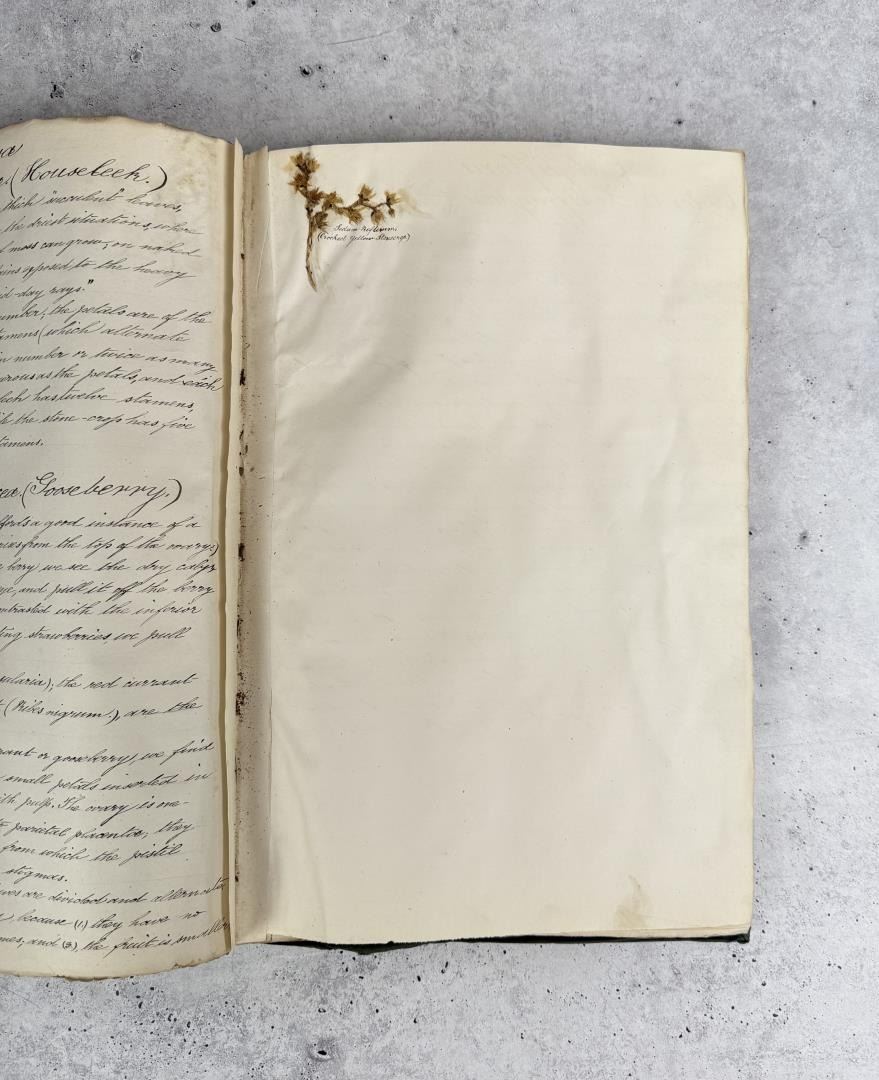 (Houseleek.)
thick "succulent" leaves,
the driest situations, where
moss can grow; on naked
exposed to the heavy
mid-day rays."
number; the petals are of the
stamens (which alternate
in number or twice as many
as the petals, and each
has twelve stamens,
the stone-crop has five
stamens.
(Gooseberry.)
affords a good instance of a
from the top of the ovary;)
berry we see the dry calyx
and pull it off the berry
contrasted with the inferior
strawberries, we pull
the red currant
(Ribes nigrum.), are the
currant or gooseberry, we find
small petals inserted in
with pulp. The ovary is one-
parietal placentæ; they
from which the pistil
stigmas.
are divided and alternate
because (1.) they have no
and (2), the fruit is smaller
Sedum Reflexum;
(Crooked Yellow Stonecrop)